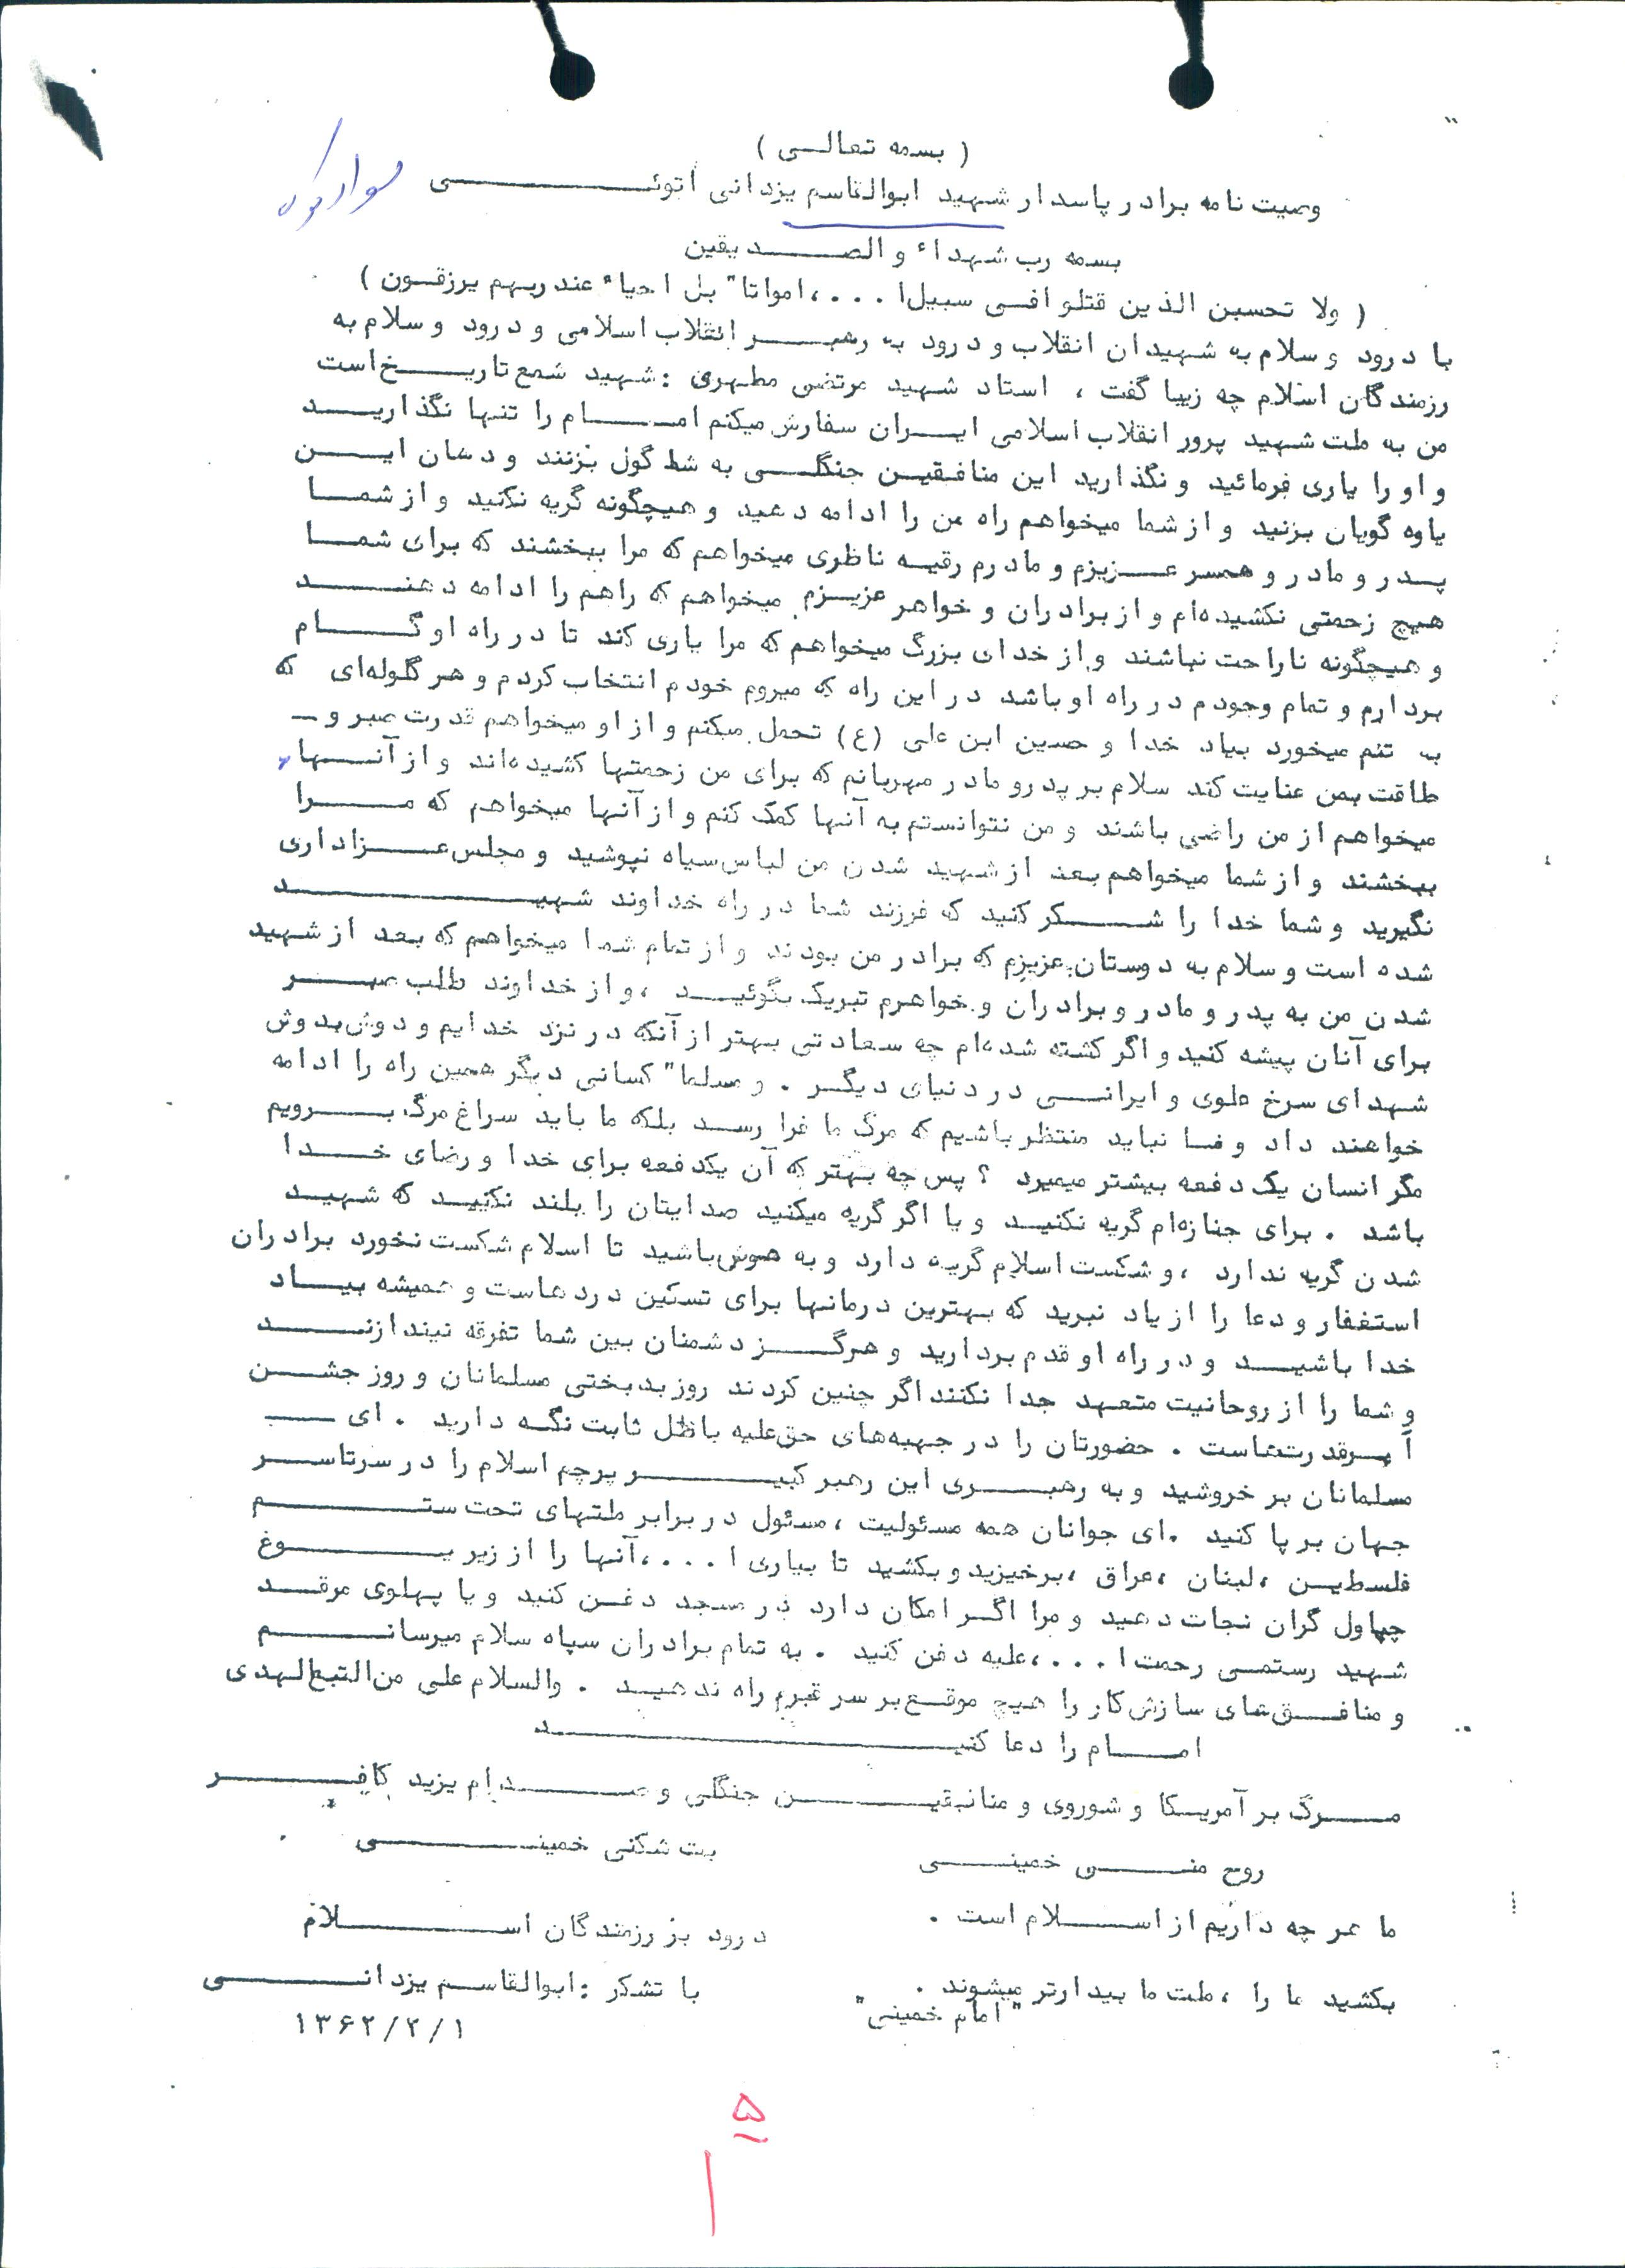 ( بسمه تعالی )
سوادکوه
وصیت نامه برادر پاسدار شهید ابوالقاسم یزدانی اتوئی
بسمه رب شهداء و الصدیقین
( ولا تحسبن الذین قتلوا فی سبیل ا . . . ، امواتا" بل احیاء عند ربهم یرزقون )
با درود و سلام به شهیدان انقلاب و درود به رهبر انقلاب اسلامی و درود و سلام به
رزمندگان اسلام چه زیبا گفت ، استاد شهید مرتضی مطهری : شهید شمع تاریخ است
من به ملت شهید پرور انقلاب اسلامی ایران سفارش میکنم امام را تنها نگذارید
و او را یاری فرمائید و نگذارید این منافقین جنگلی به شط گول بزنند و دهان این
یاوه گویان بزنید و از شما میخواهم راه من را ادامه دهید و هیچگونه گریه نکنید و از شما
پدر و مادر و همسر عزیزم و مادرم رقیه ناظری میخواهم که مرا ببخشند که برای شما
هیچ زحمتی نکشیده‌ام و از برادران و خواهر عزیزم میخواهم که راهم را ادامه دهند
و هیچگونه ناراحت نباشند و از خدای بزرگ میخواهم که مرا یاری کند تا در راه او گام
بردارم و تمام وجودم در راه او باشد در این راه که میروم خودم انتخاب کردم و هر گلوله‌ای که
به تنم میخورد بیاد خدا و حسین ابن علی (ع) تحمل میکنم و از او میخواهم قدرت صبر و ـ
طاقت بمن عنایت کند سلام بر پدر و مادر مهربانم که برای من زحمتها کشیده‌اند و از آنها
میخواهم از من راضی باشند و من نتوانستم به آنها کمک کنم و از آنها میخواهم که مرا
ببخشند و از شما میخواهم بعد از شهید شدن من لباس سیاه نپوشید و مجلس عزاداری
نگیرید و شما خدا را شکر کنید که فرزند شما در راه خداوند شهید
شده است و سلام به دوستان عزیزم که برادر من بودند و از تمام شما میخواهم که بعد از شهید
شدن من به پدر و مادر و برادران و خواهرم تبریک بگوئید ، و از خداوند طلب صبر
برای آنان پیشه کنید و اگر کشته شده‌ام چه سعادتی بهتر از آنکه در نزد خدایم و دوش بدوش
شهدای سرخ علوی و ایرانی در دنیای دیگر . و مسلما" کسانی دیگر همین راه را ادامه
خواهند داد و ما نباید منتظر باشیم که مرگ ما فرا رسد بلکه ما باید سراغ مرگ برویم
مگر انسان یک دفعه بیشتر میمیرد ؟ پس چه بهتر که آن یکدفعه برای خدا و رضای خدا
باشد . برای جنازه‌ام گریه نکنید و یا اگر گریه میکنید صدایتان را بلند نکنید که شهید
شدن گریه ندارد ، و شکست اسلام گریه دارد و به هوش باشید تا اسلام شکست نخورد برادران
استغفار و دعا را از یاد نبرید که بهترین درمانها برای تسکین دردهاست و همیشه بیاد
خدا باشید و در راه او قدم بردارید و هرگز دشمنان بین شما تفرقه نیندازند
و شما را از روحانیت متعهد جدا نکنند اگر چنین کردند روز بدبختی مسلمانان و روز جشن
ابرقدرتهاست . حضورتان را در جبهه‌های حق علیه باطل ثابت نگه دارید . ای ـ
مسلمانان بر خروشید و به رهبری این رهبر کبیر پرچم اسلام را در سرتاسر
جهان بر پا کنید . ای جوانان همه مسئولیت ، مسئول در برابر ملتهای تحت ستم
فلسطین ، لبنان ، عراق ، برخیزید و بکشید تا بیاری ا . . . ، آنها را از زیر یوغ
چپاول گران نجات دهید و مرا اگر امکان دارد در مسجد دفن کنید و یا پهلوی مرقد
شهید رستمی رحمت ا . . . ، علیه دفن کنید . به تمام برادران سپاه سلام میرسانم
و منافق‌های سازش کار را هیچ موقع بر سر قبرم راه ندهید . والسلام علی من التبع الهدی
امام را دعا کنید
مرگ بر آمریکا و شوروی و منافقین جنگلی و صدام یزید کافر
روح منی خمینی
بت شکنی خمینی
ما هر چه داریم از اسلام است .
درود بر رزمندگان اسلام
بکشید ما را ، ملت ما بیدارتر میشوند .
"امام خمینی"
با تشکر : ابوالقاسم یزدانی
۱۳۶۲/۲/۱
۵